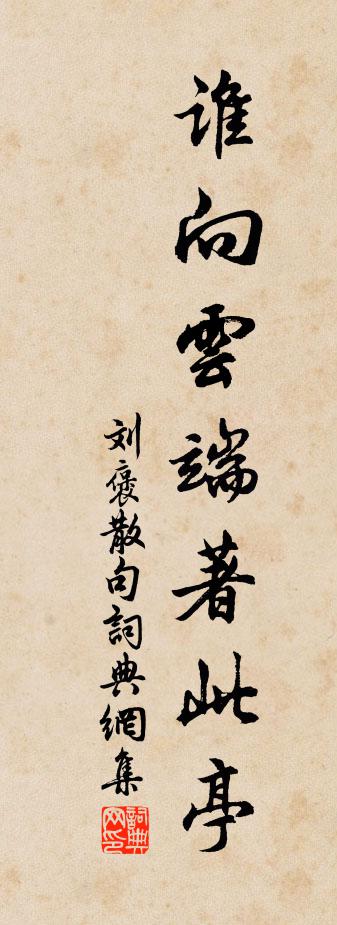 誰向雲端著此亭
刘褒散句詞典網集
詞典网印